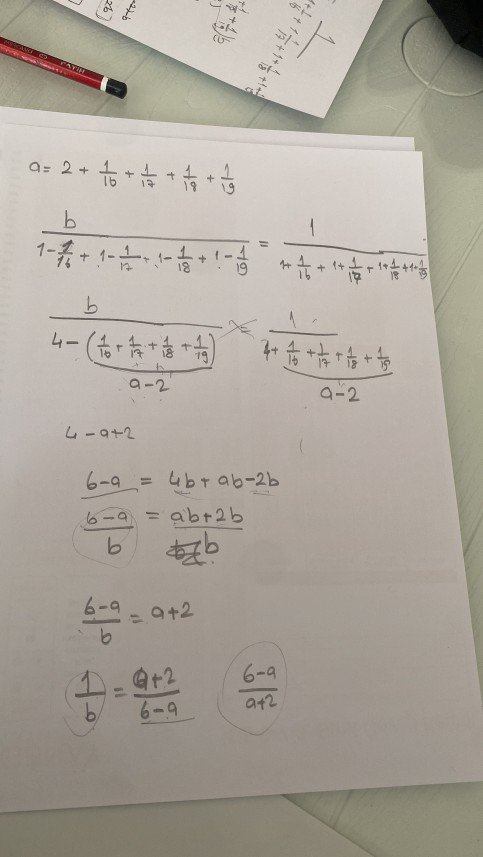 FATIH
a = 2 + 1/16 + 1/17 + 1/18 + 1/19
b / (1 - 1/16 + 1 - 1/17 + 1 - 1/18 + 1 - 1/19) = 1 / (1 + 1/16 + 1 + 1/17 + 1 + 1/18 + 1 + 1/19)
b / (4 - (1/16 + 1/17 + 1/18 + 1/19)) = 1 / (4 + 1/16 + 1/17 + 1/18 + 1/19)
a-2 a-2
4 - a+2
6-a = 4b + ab - 2b
(6-a)/b = (ab+2b)/b
(6-a)/b = a+2
1/b = (a+2)/(6-a) (6-a)/(a+2)